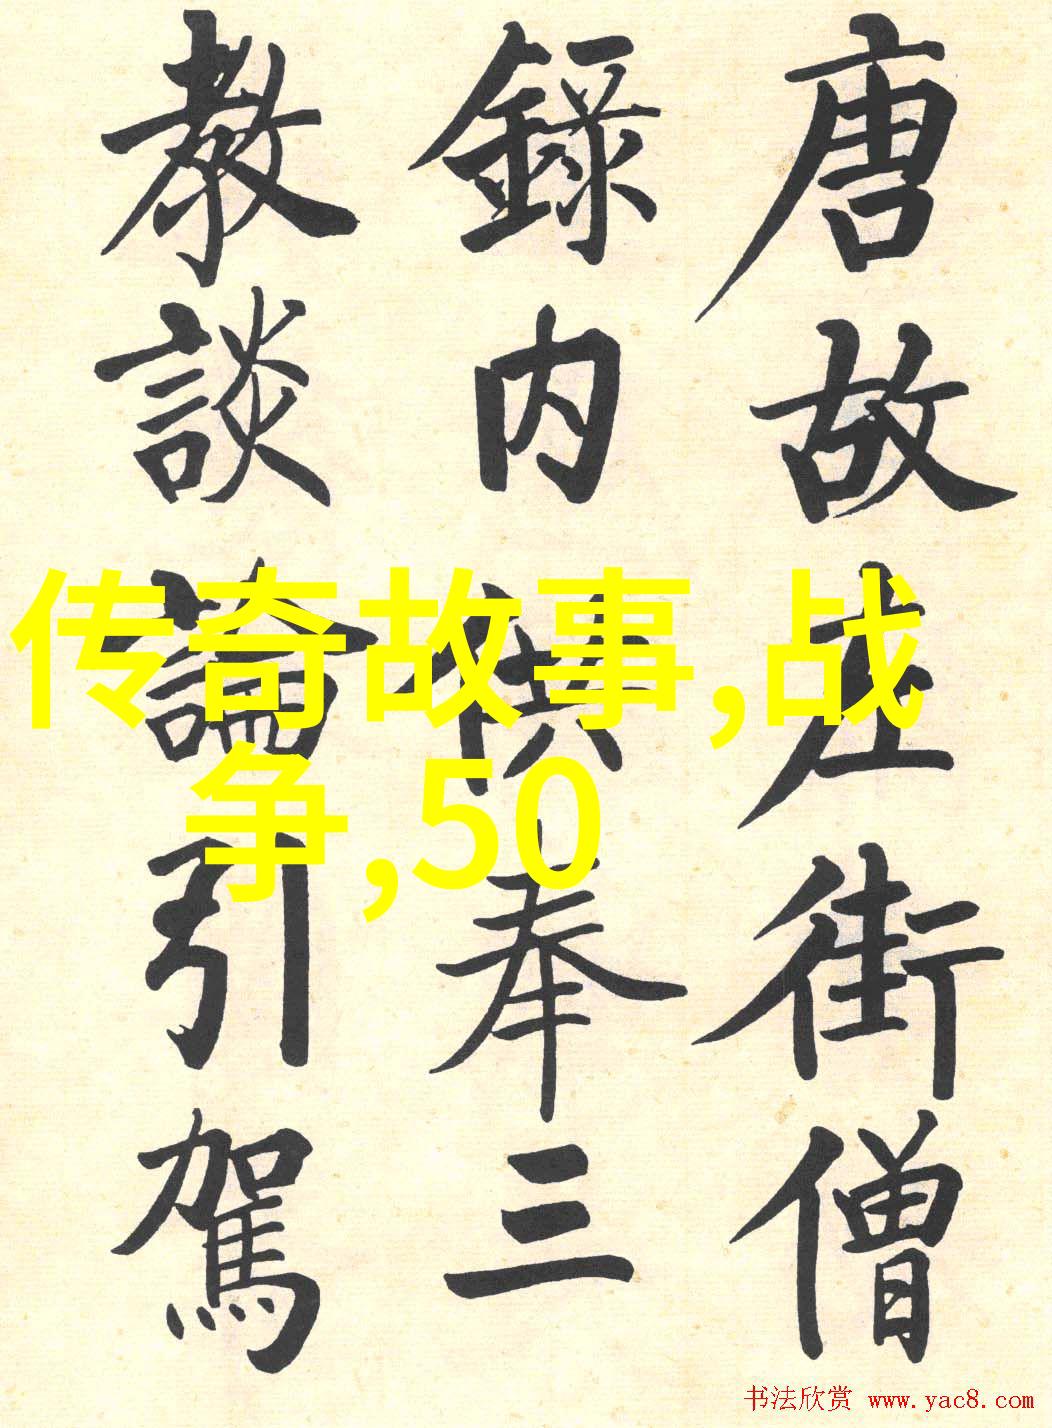 唐故左街僧
錄內供奉三
教談論引駕
传奇故事,战
争,50
书法欣赏 www.yac8.com